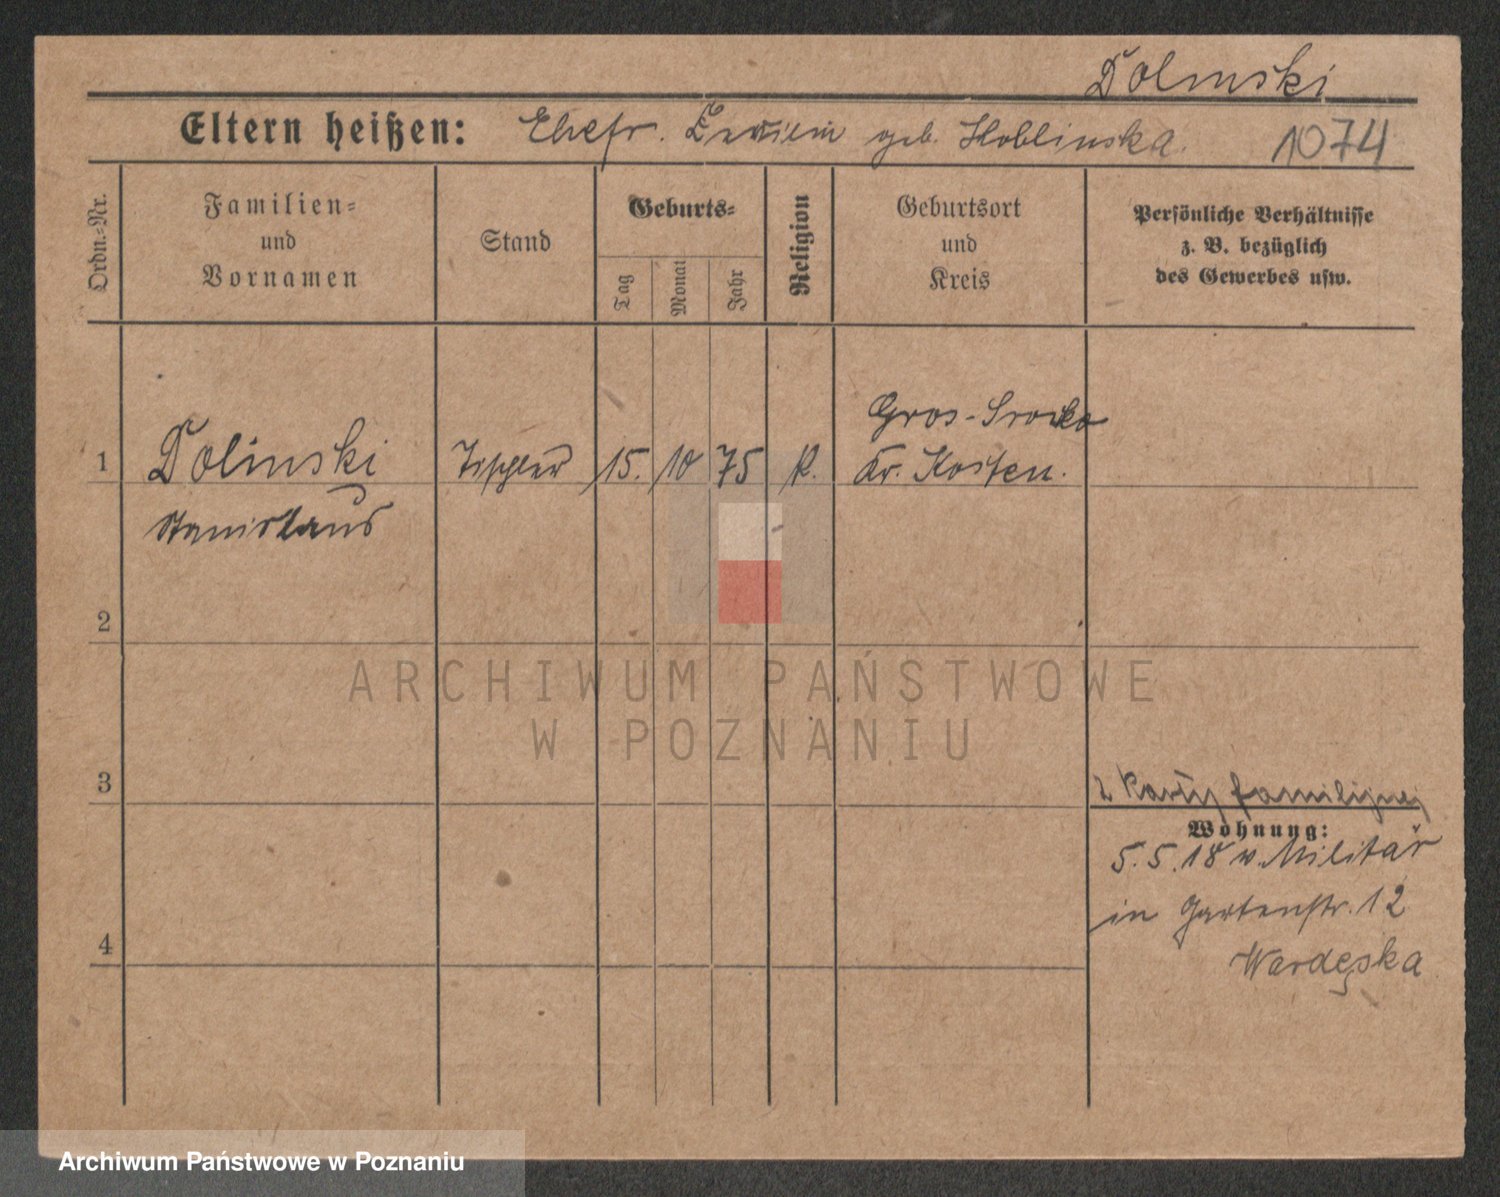 Dolinski
Eltern heißen: Ehefr. geb. Koblinska. 1074
Ordn.-Nr.
Familien-
und
Vornamen
Stand
Geburts-
Tag
Monat
Jahr
Religion
Geburtsort
und
Kreis
Persönliche Verhältnisse
z. B. bezüglich
des Gewerbes usw.
Gros-Srocko
1 Dolinski Tischler 15. 10 75 k. Kr. Kosten.
Stanislaus
2
ARCHIWUM PAŃSTWOWE
W POZNANIU
3
z Karty familijnej
Wohnung:
5.5.18 v. Militär
in Gartenstr. 12
4
Archiwum Państwowe w Poznaniu